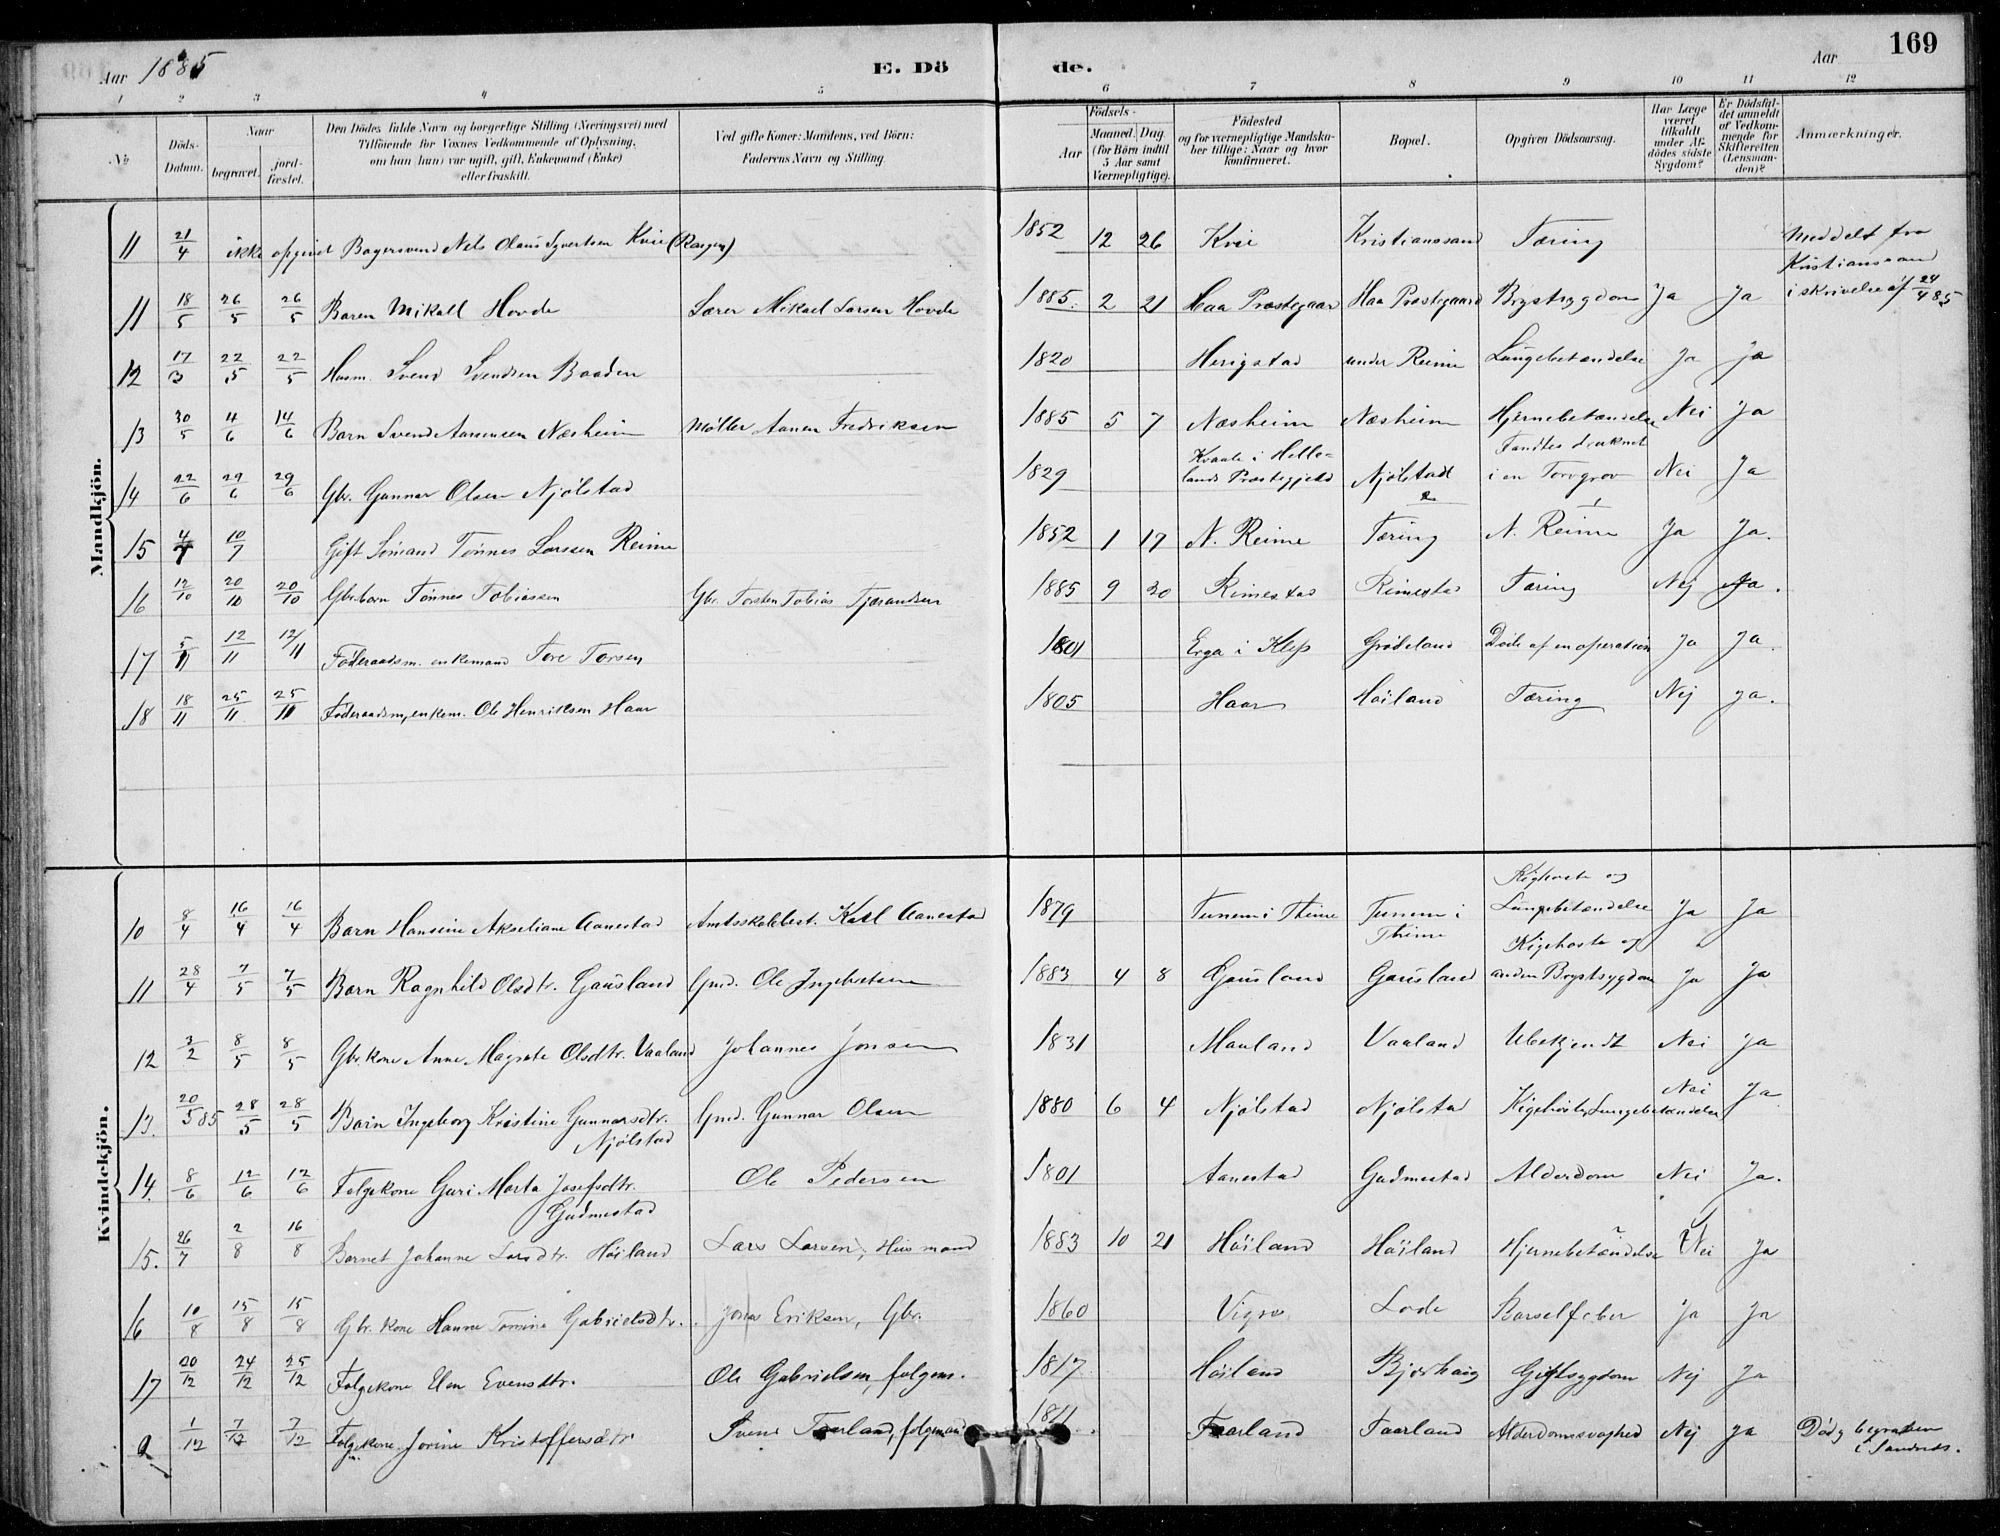 Aar 1885 E. Dö de. Aar 169
1 2 3 4 5 6 7 8 9 10 11 12
№ Döds-Datum. Naar begravet. jordfæstet. Den Dödes fulde Navn og borgerlige Stilling (Næringsvei) med Tilföiende for Voxnes Vedkommende af Oplysning, om han (hun) var ugift, gift, Enkemand (Enke) eller fraskilt. Ved gifte Koner: Mandens, ved Börn: Faderens Navn og Stilling. Födsels- Aar Maaned. Dag. (for Börn indtil 5 Aar samt Værnepligtige). Födested og for værnepligtige Mandskaber tillige: Naar og hvor konfirmeret. Bopæl. Opgiven Dödsaarsag. Har Læge været tilkaldt under Afdödes sidste Sygdom? Er Dödsfaldet anmeldt af Vedkommende for Skifteretten (Lensmanden)? Anmærkninger.
Mandkjön.
11 21/4 ikke opgivet Bagersvend Nils Olaus Syvertsen Kvie 1852 12 26 Kvie Kristianssand Tæring Meddelt fra Kristianssand i skrivelse af 24/4 85
11 18/5 26/5 26/5 Baren Mikall Hovde Lærer Mikael Larsen Hovde 1885. 2 21 Haa Præstegaar Haa Præstegaard Brystsygdom Ja Ja
12 17/3 22/5 22/5 Husm. Svend Svendsen Baaden 1820 Herigstad under Reime Lungebetændelse Ja Ja
13 30/5 4/6 14/6 Barn Svend Aanensen Næsheim Møller Aanen Fredriksen 1885 5 7 Næsheim Næsheim Hjernebetændelse Nei Ja
14 22/6 29/6 29/6 Gbr. Gunnar Olsen Njølstad 1829 Kvaale i Hellelands Præstegjeld Njølstad Fandtes druknet i en Torvgrov Nei Ja
15 4/7 10/7 Gift Sømand Tønnes Larssen Reime 1852 1 17 N. Reime Tæring N. Reime Ja Ja.
16 12/10 20/10 20/10 Gbr. barn Tønnes Tobiassen Gbr. Torsten Tobias Tjerandsen 1885 9 30 Rimestad Rimestad Tæring Nej Ja.
17 5/11 12/11 12/11 Föderaadsm. enkemand Tore Torsen 1801 Erga i Klep Grødeland Døde af en operation Ja Ja.
18 18/11 25/11 25/11 Föderaadsm, enkem. Ole Henriksen Haar 1805 Haar Höiland Tæring Nej ja.
Kvindekjön.
10 8/4 16/4 16/4 Barn Hansine Akseliane Aanestad Amtsskolebest. Karl Aanestad 1879 Tunem i Thime Tunem i Thime Kighoste og Lungebetændelse Ja Ja
11 28/4 7/5 7/5 Barn Ragnhild Olsdtr. Gausland Gmd. Ole Ingebretsen 1883 4 8 Gausland Gausland Kigehoste og anden Brystsygdom Ja Ja
12 3/2 8/5 8/5 Gbr. kone Anne Magrete Olsdtr. Vaaland Johannes Jonsen 1831 Mauland Vaaland Ubekjendt Nei Ja
13. 20/5 85 28/5 28/5 Barn Ingeborg Kristine Gunnarsdtr. Njølstad Gmd. Gunnar Olsen 1880 6 4 Njølstad Njølstad Kigehoste, Lungebetændelse Nei Ja
14. 8/6 12/6 12/6 Folgekone Guri Marta Josefsdtr. Gudmestad Ole Pedersen 1801 Aanestad Gudmestad Alderdom Nei Ja.
15. 26/7 2/8 16/8 Barnet Johanne Larsdtr. Höiland Lars Larsen, Husmand 1883 10 21 Höiland Höiland Hjernebetændelse Nei Ja
16 10/8 15/8 15/8 Gbr. kone Hanne Tomine Gabrielsdtr. Jonas Eriksen, Gbr. 1860 Vigre Lode Barselfeber Ja Ja
17 20/12 24/12 25/12 Folgekone Elen Evensdtr. Ole Gabrielsen, folgem. 1817 Höiland Bjorhaug Gigtsygdom Nej Ja
a 1/12 7/12 7/12 Folgekone Jorine Kristoffersdtr Svend Taarland, folgemand 1811 Taarland Taarland Alderdomssvaghed Nej Ja Död og begraven i Sandnes.